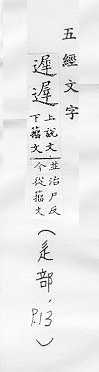 五經文字
遲遟
上說文
下籒文
並治尸反
今從籒文
(辵部, P.13)